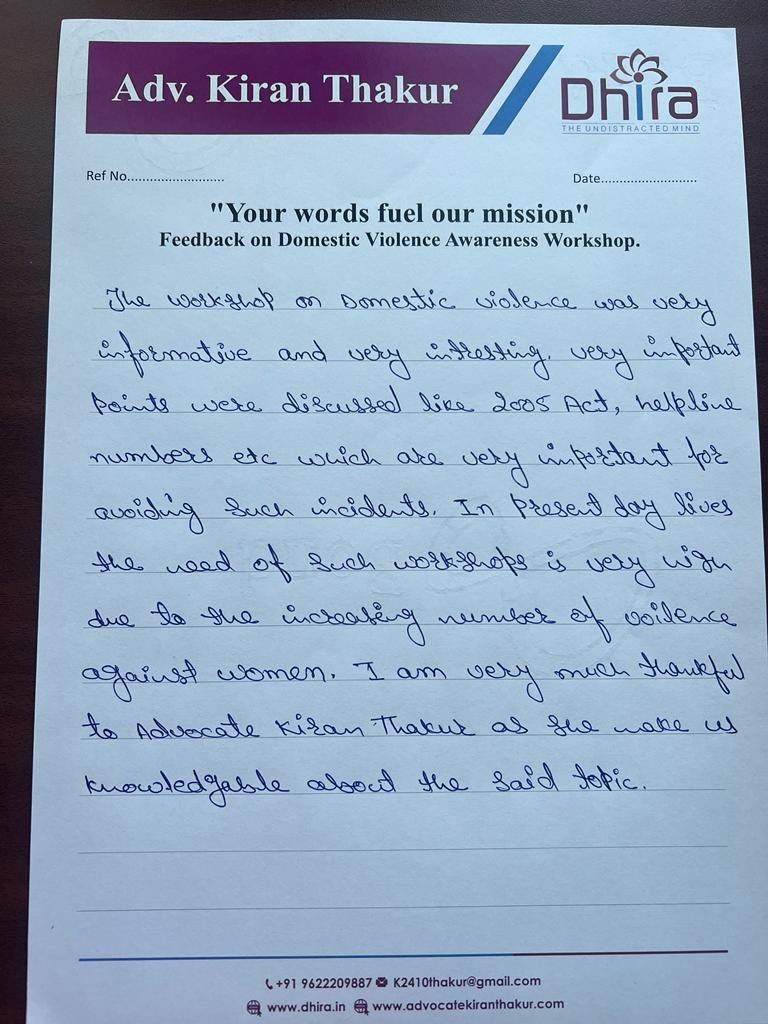 Adv. Kiran Thakur
Dhira
THE UNDISTRACTED MIND
Ref No..........................
Date..........................
"Your words fuel our mission"
Feedback on Domestic Violence Awareness Workshop.
The workshop on Domestic violence was very
informative and very intresting. very important
points were discussed like 2005 Act, helpline
numbers etc which are very important for
avoiding such incidents. In present day lives
the need of such workshops is very
due to the increasing number of voilence
against women. I am very much thankful
to Advocate Kiran Thakur as she make us
knowledgable about the said topic.
+91 9622209887 K2410thakur@gmail.com
www.dhira.in www.advocatekiranthakur.com